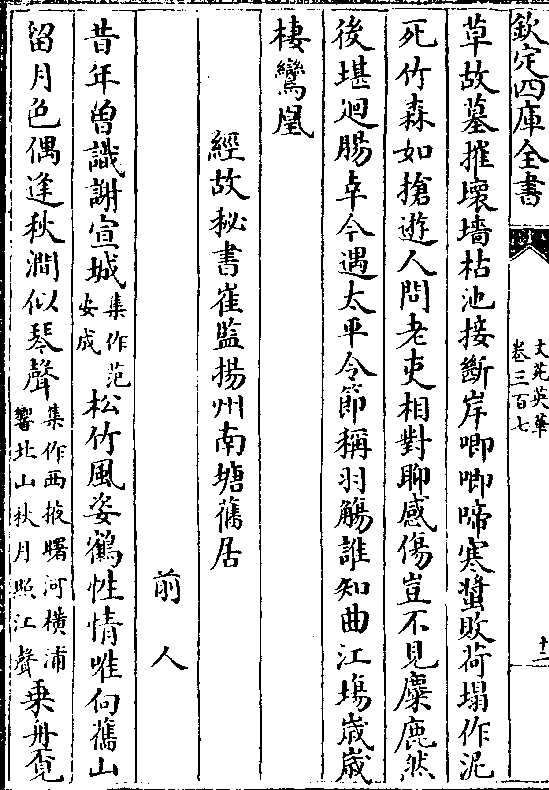 欽定四庫全書
文苑英華
卷三百七
十二
草故墓摧壞墻枯池接斷岸唧唧啼寒螿敗荷塌作泥
死竹森如搶遊人問老吏相對聊感傷豈不見麋鹿然
後堪迴腸幸今遇太平令節稱羽觴誰知曲江塲歳歳
棲鸞凰
經故秘書崔監揚州南塘舊居
前人
昔年曽識謝宣城集作范安成松竹風姿鶴性情唯向舊山
留月色偶逢秋澗似琴聲集作西掖曙河横浦響北山秋月照江聲乗舟覔